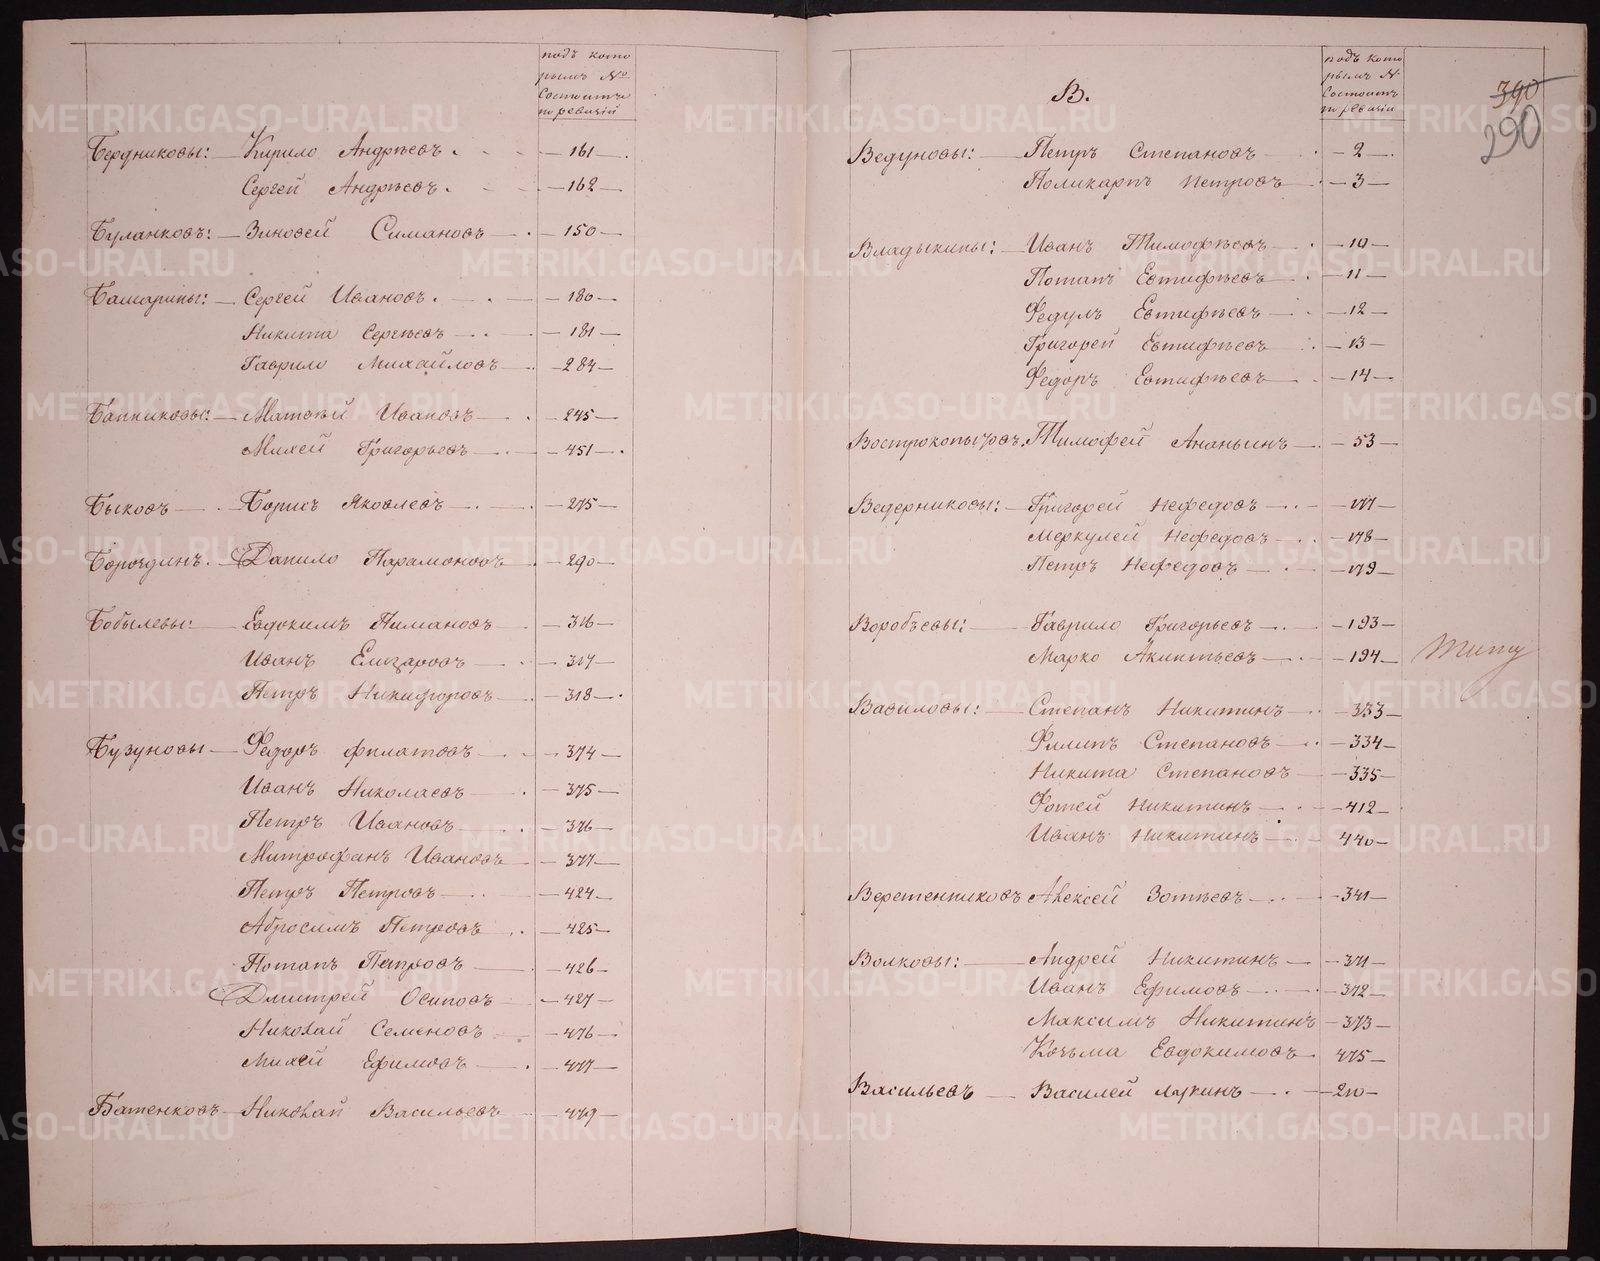 подъ кото
рымъ №
Состоитъ
по ревизiи
Бердниковы: Кирило Андрѣевъ 161
Сергей Андрѣевъ 162
Буланковъ: Зиновей Симановъ 150
Бамарины: Сергей Ивановъ 180
Никита Сергѣевъ 181
Гаврило Михайловъ 284
Банниковы: Матвѣй Ивановъ 245
Михей Григорьевъ 451
Быковъ Борисъ Яковлевъ 275
Бороздинъ Данило Парамоновъ 290
Бобылевы: Евдокимъ Пимановъ 316
Иванъ Елизаровъ 317
Петръ Никифоровъ 318
Бузуновы Федоръ Филатовъ 374
Иванъ Николаевъ 375
Петръ Ивановъ 376
Митрофанъ Ивановъ 377
Петръ Петровъ 424
Абросимъ Петровъ 425
Потапъ Петровъ 426
Дмитрей Осиповъ 427
Николай Семеновъ 476
Михей Ефимовъ 477
Батенковъ Николай Васильевъ 479
В.
подъ кото
рымъ №
Состоитъ
по ревизiи
390
290
Ведуновы: Петръ Степановъ 2
Поликарпъ Петровъ 3
Владыкины: Иванъ Тимофѣевъ 10
Потапъ Евтифѣевъ 11
Федулъ Евтифѣевъ 12
Григорей Евтифѣевъ 13
Федоръ Евтифѣевъ 14
Вострокопытовъ. Тимофей Ананьинъ 53
Ведерниковы: Григорей Нефедовъ 177
Меркулей Нефедовъ 178
Петръ Нефедовъ 179
Воробьевы: Гаврило Григорьевъ 193
Марко Акинтьевъ 194
Вавиловы: Степанъ Никитинъ 333
Филипъ Степановъ 334
Никита Степановъ 335
Фотей Никитинъ 412
Иванъ Никитинъ 440
Веретенниковъ Алексей Зотѣевъ 341
Волковы: Андрей Никитинъ 371
Иванъ Ефимовъ 372
Максимъ Никитинъ 373
Козьма Евдокимовъ 475
Васильевъ Василей Лукинъ 210
METRIKI.GASO-URAL.RU